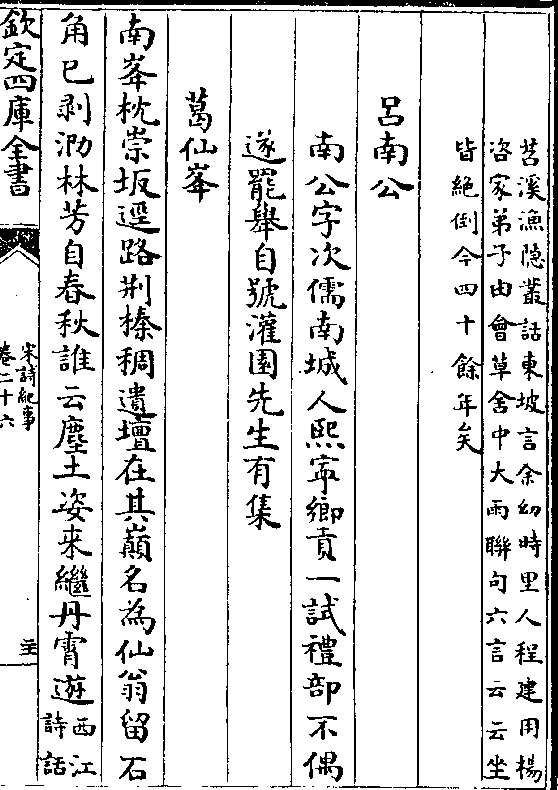 苕溪漁隱叢話東坡言余幼時里人程建用楊
咨家弟子由會草舍中大雨聯句六言云云坐
皆絶倒今四十餘年矣
呂南公
南公字次儒南城人熙寧鄉貢一試禮部不偶
遂罷舉自號灌園先生有集
葛仙峯
南峯枕崇坂逕路荆榛稠遺壇在其巔名為仙翁留石
角已剥泐林芳自春秋誰云塵土姿来繼丹霄遊西江
詩話
欽定四庫全書
宋詩紀事
卷二十六